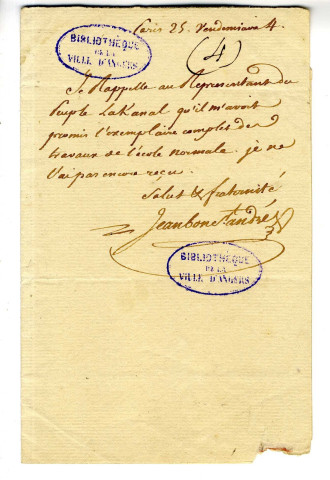 Paris 25. Vendemiaire 4.
(4)
BIBLIOTHÈQUE
DE LA
VILLE D'ANGERS
Je Rappelle au Representant du
Peuple Lakanal qu'il m'avoit
promis l'exemplaire complet des
travaux de l'école normale. je ne
l'ai pas encore reçu.
Salut & fraternité
Jeanbon St André
BIBLIOTHÈQUE
DE LA
VILLE D'ANGERS